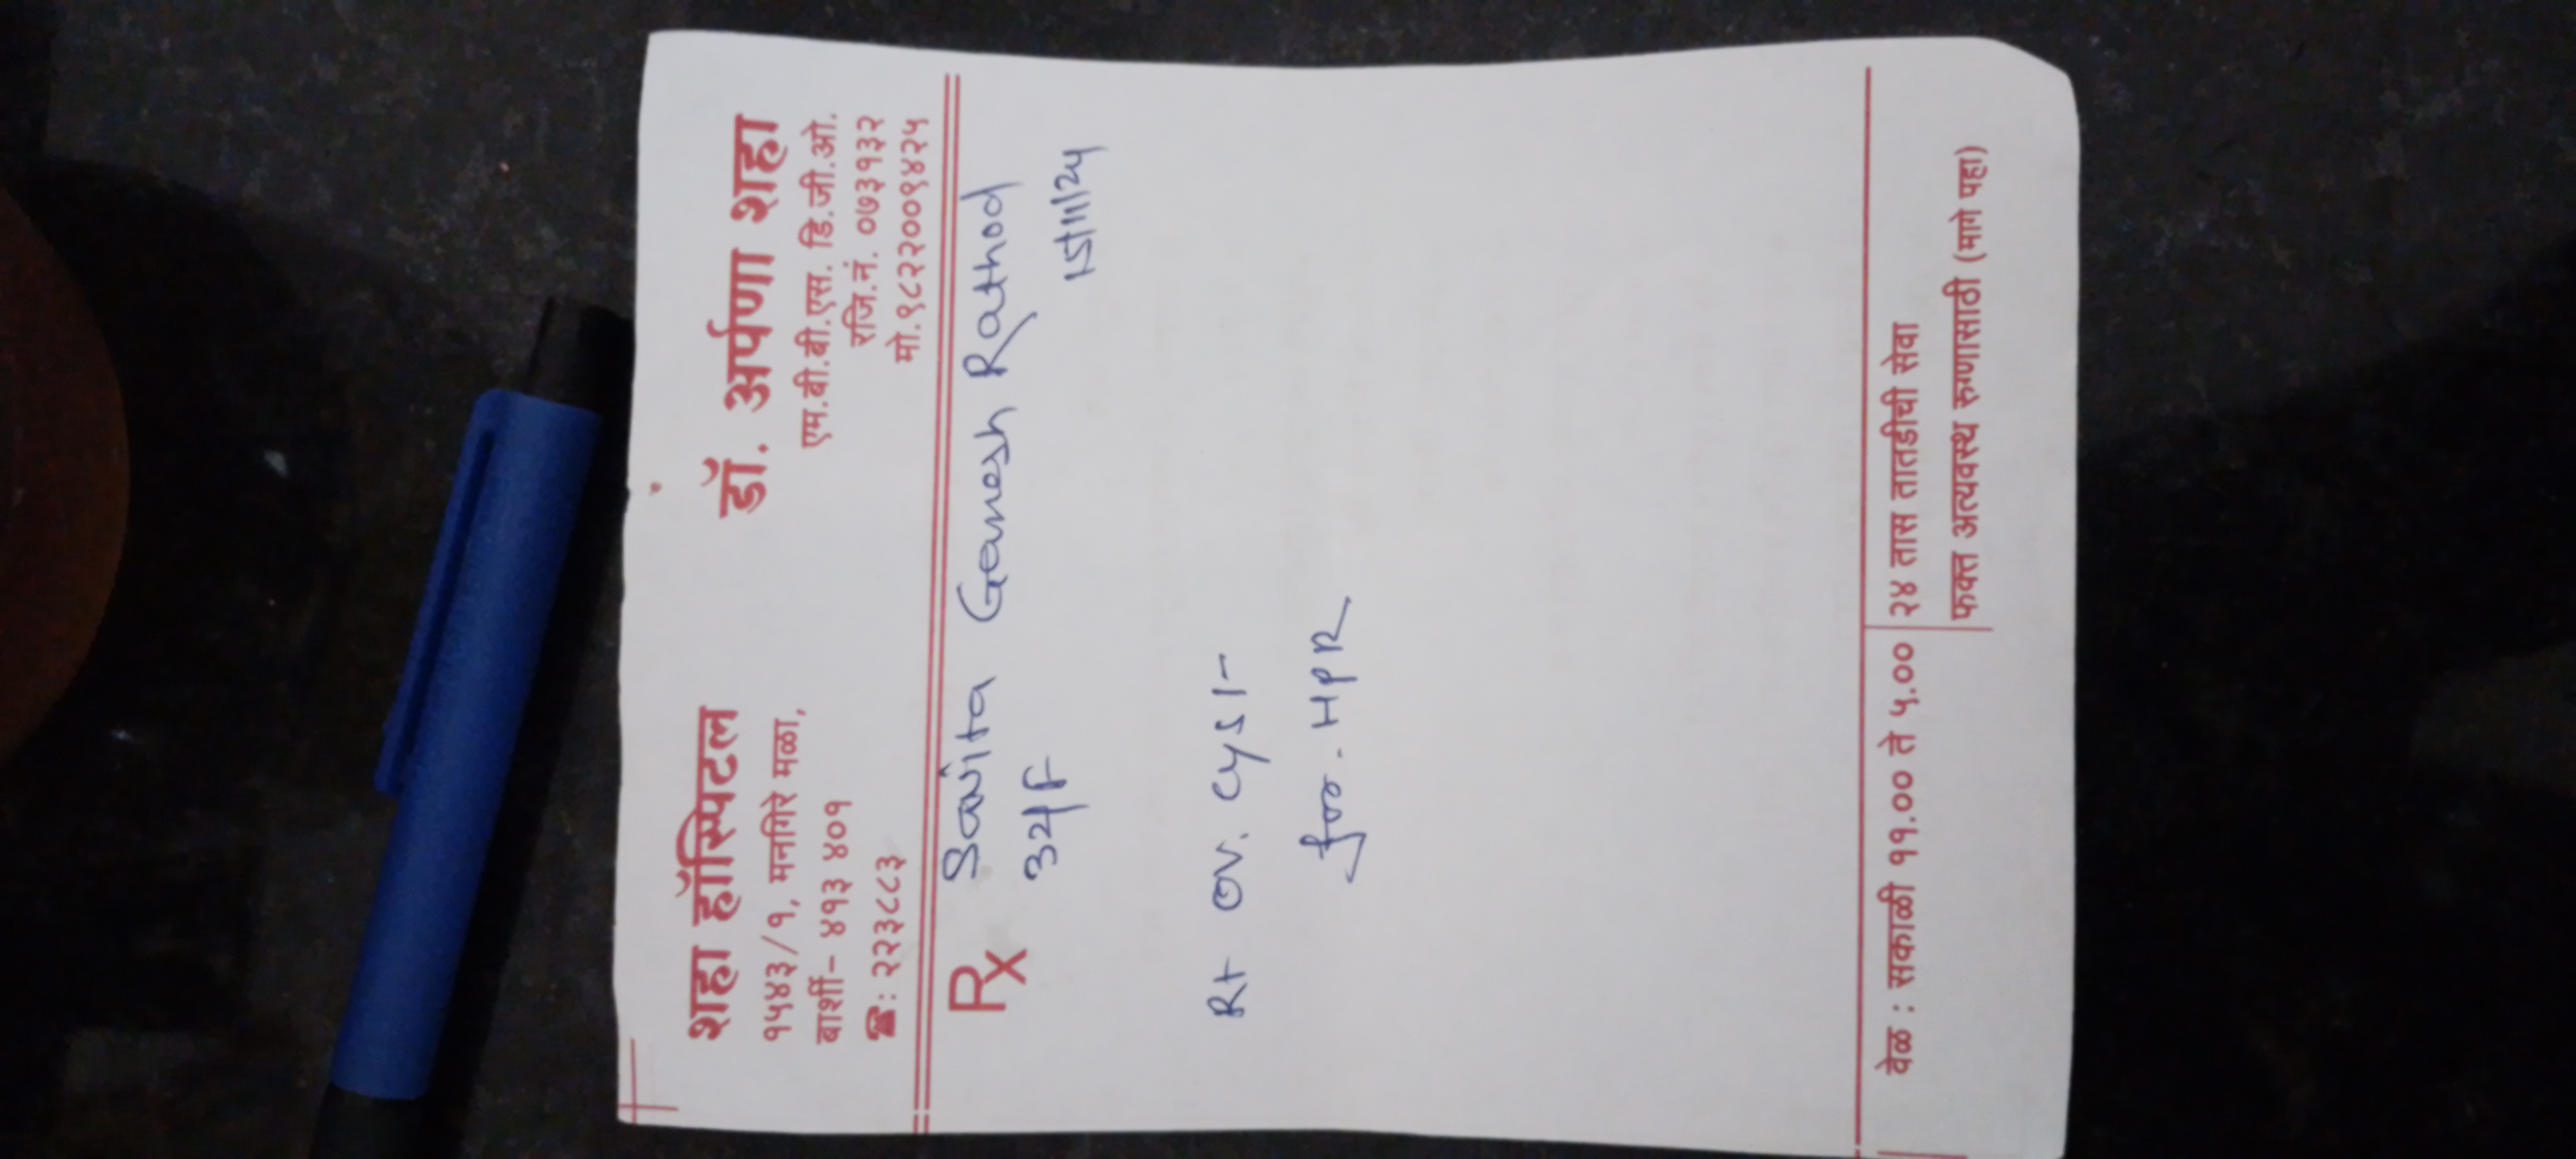 शहा हॉस्पिटल
१५४३/१, मनगिरे मळा,
बार्शी- ४१३ ४०१
☎: २२३८८३
डॉ. अर्पणा शहा
एम.बी.बी.एस. डि.जी.ओ.
रजि.नं. ०७३१३२
मो.९८२२००९४२५
Rx
Savita Ganesh Rathod
32/F
15/11/24
Rt ov. cyst
for - HPR
वेळ : सकाळी ११.०० ते ५.००
२४ तास तातडीची सेवा
फक्त अत्यवस्थ रुग्णासाठी (मागे पहा)